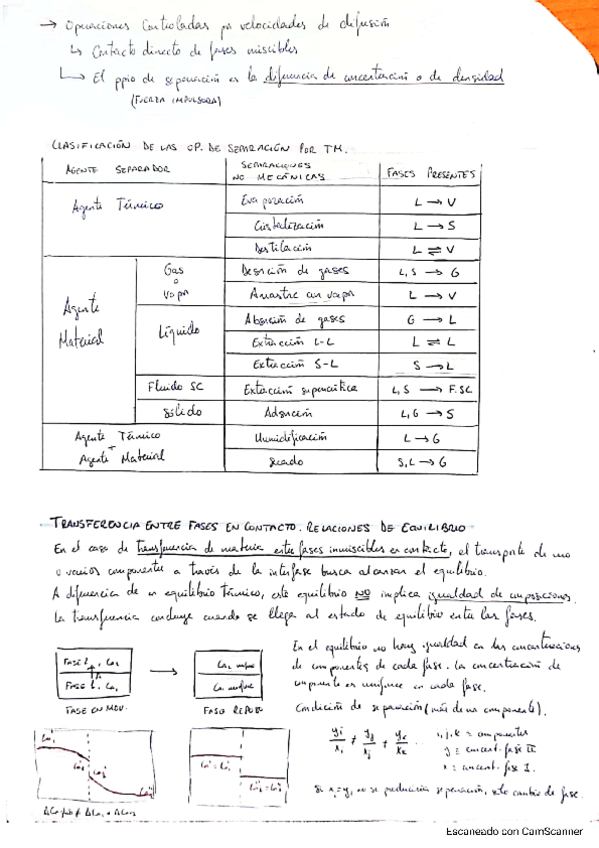 → Operaciones Controladas por velocidades de difusión
↳ Contacto directo de fases miscibles
↳ El ppio de separación es la diferencia de concentración o de densidad
(FUERZA IMPULSORA)
CLASIFICACIÓN DE LAS OP. DE SEPARACIÓN POR TM.
AGENTE SEPARADOR | SEPARACIONES NO MECÁNICAS | FASES PRESENTES
Agente Térmico | Evaporación | L → V
Cristalización | L → S
Destilación | L ⇌ V
Agente Material | Gas o Vapor | Desorción de gases | L, S → G
Arrastre con vapor | L → V
Líquido | Absorción de gases | G → L
Extracción L-L | L ⇌ L
Extracción S-L | S → L
Fluido SC | Extracción supercrítica | L, S → F.SC
Sólido | Adsorción | L, G → S
Agente Térmico + Agente Material | Humidificación | L → G
Secado | S, L → G
TRANSFERENCIA ENTRE FASES EN CONTACTO. RELACIONES DE EQUILIBRIO
En el caso de transferencia de materia entre fases inmiscibles en contacto, el transporte de uno
o varios componentes a través de la interfase busca alcanzar el equilibrio.
A diferencia de un equilibrio térmico, este equilibrio NO implica igualdad de composiciones.
La transferencia concluye cuando se llega al estado de equilibrio entre las fases.
En el equilibrio no hay igualdad en las concentraciones
de componentes de cada fase. La concentración de
componente es uniforme en cada fase.
Condición de separación (más de un componente).
FASE
FASE
FASE EN MOV.
FASE REPOSO
yi/xi ≠ yj/xj ≠ yk/xk ...
i, j, k = componentes
y = concent. fase II
x = concent. fase I.
Si xi=yi no se produciría separación, sólo cambio de fase.
Escaneado con CamScanner